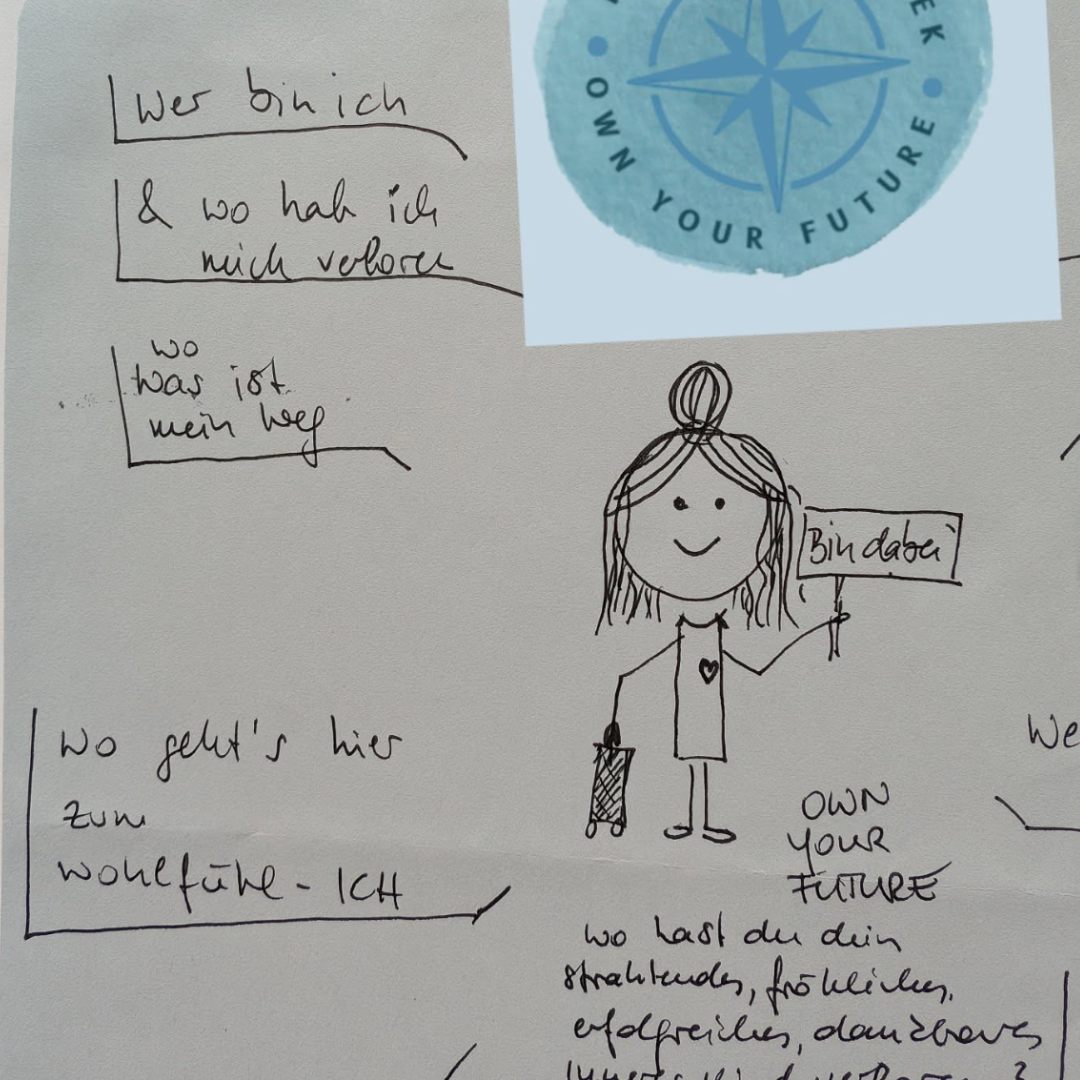 EK
OWN YOUR FUTURE
Wer bin ich
& wo hab ich
mich verloren
wo
was ist
mein Weg
Bin dabei
wo geht's hier
zum
wohlfühl-ICH
We
OWN
YOUR
FUTURE
wo hast du dein
strahlendes, fröhliches,
erfolgreiches, dankbares